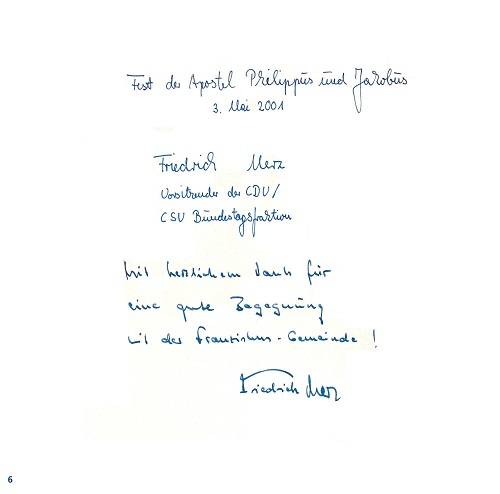 Fest der Apostel Philippus und Jakobus
3. Mai 2001
Friedrich Merz
Vorsitzender der CDU/
CSU Bundestagsfraktion
Mit herzlichem Dank für
eine gute Begegnung
mit der Franziskus-Gemeinde!
Friedrich Merz
6